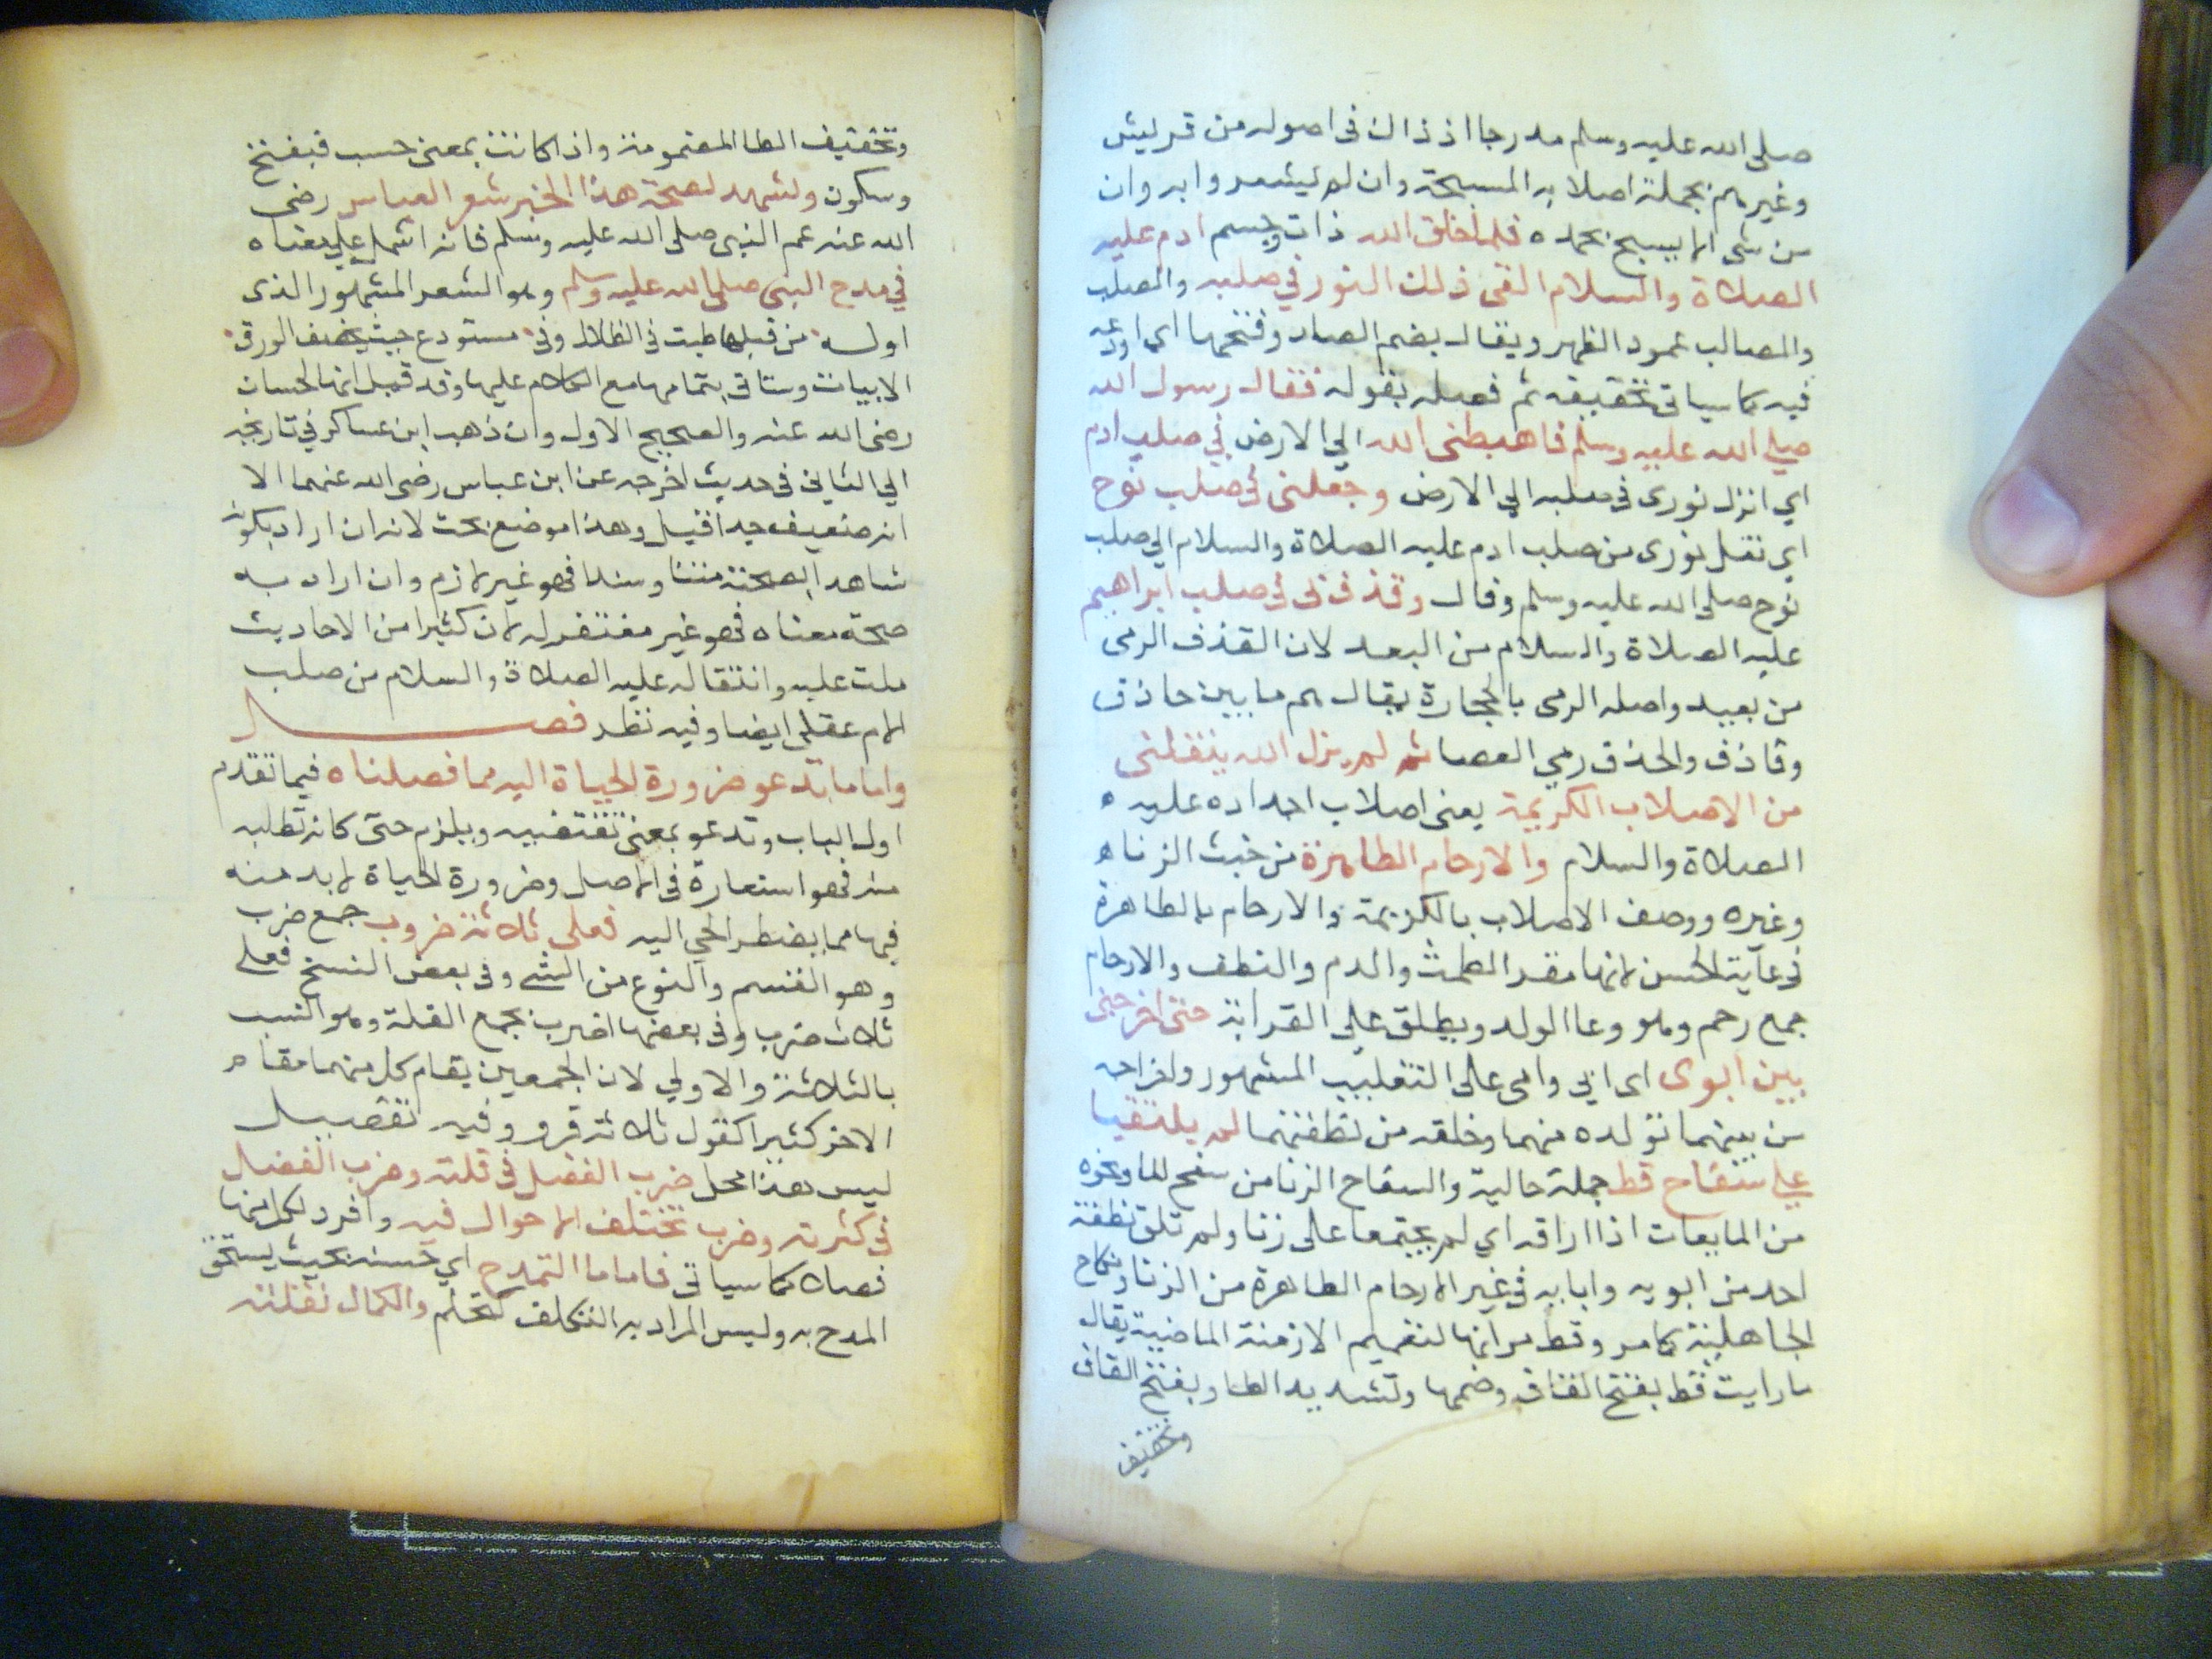 صلى الله عليه وسلم مدرجا اذ ذاك فى اصوله من قريش
وغيرهم بجملة اصلابه المسبحة وان لم يشعروا به وان
من شى الا يسبح بحمده فلما خلق الله ذات وجسم ادم عليه
الصلاة والسلام القى ذلك النور في صلبه والصلب
والصالب عمود الظهر ويقال بضم الصاد وفتحها اي اودعه
فيه كما سياتى تحقيقه ثم فصله بقوله فقال رسول الله
صلى الله عليه وسلم فاهبطنى الله الي الارض في صلب ادم
اي انزل نورى فى صلبه الي الارض وجعلنى في صلب نوح
اى نقل نورى من صلب ادم عليه الصلاة والسلام الي صلب
نوح صلى الله عليه وسلم وقال وقذف بى في صلب ابراهيم
عليه الصلاة والسلام من البعد لان القذف الرمى
من بعيد واصله الرمى بالحجارة يقال هم ما بين حاذف
وقاذف والحذف رمي العصا ثم لم يزل الله ينقلنى
من الاصلاب الكريمة يعنى اصلاب اجداده عليه
الصلاة والسلام والارحام الطاهرة من خبث الزنا
وغيره ووصف الاصلاب بالكريمة والارحام بالطاهرة
فى غاية الحسن لانها مقر الطمث والدم والنطف والارحام
جمع رحم وهو وعا الولد ويطلق على القرابة حتى اخرجنى
بين ابوى اى ابي وامى على التغليب المشهور واخراجه
من بينهما تولده منهما وخلقه من نطفتهما لم يلتقيا
علي سفاح قط جملة حالية والسفاح الزنا من سفح الما ونحوه
من المايعات اذا اراقه اي لم يجتمعا على زنا ولم تلق نطفة
احد من ابويه وابايه فى غير الارحام الطاهرة من الزنا ونكاح
الجاهلية كما مر وقط مر انها لتعميم الازمنة الماضية يقال
ما رايت قط بفتح القاف وضمها وتشديد الطا وبفتح القاف
وتخفيف
وتخفيف الطا المضمومة واذا كانت بمعنى حسب فبفتح
وسكون ويشهد لصحة هذا الخبر شعر العباس رضى
الله عنه عم النبى صلى الله عليه وسلم فانه اشمل علي معناه
في مدح النبى صلى الله عليه وسلم وهو الشعر المشهور الذى
اوله من قبلها طبت فى الظلال وفى مستودع حيث يخصف الورق
الابيات وستاتى بتمامها مع الكلام عليها وقد قيل انها لحسان
رضى الله عنه والصحيح الاول وان ذهب ابن عساكر في تاريخه
الي الثانى فى حديث اخرجه عن ابن عباس رضى الله عنهما الا
انه ضعيف جدا قيل وهذا موضع بحث لانه ان اراد بكونه
شاهدا بصحته متنا وسندا فهو غير لازم وان اراد به
صحة معناه فهو غير مفتقر له لان كثيرا من الاحاديث
دلت عليه وانتقاله عليه الصلاة والسلام من صلب
لام عقلى ايضا وفيه نظر فصل
واما ما تدعو ضرورة الحياة اليه مما فصلناه فيما تقدم
اول الباب وتدعو بمعنى تقتضيه ويلزم حتى كانه تطلبه
منه فهو استعارة فى الاصل وضرورة الحياة لا بد منه
فيها مما يضطر الحي اليه فعلى ثلاثة ضروب جمع ضرب
وهو القسم والنوع من الشي وفى بعض النسخ فعلي
ثلاث ضرب وفى بعضها اضرب بجمع القلة وهو انسب
بالثلاثة والاولي لان الجمعين يقام كل منهما مقام
الاخر كثيرا كقول ثلاثة قرو وفيه تفصيل
ليس هذا محل ضرب الفضل فى قلته وضرب الفضل
فى كثرته وضرب تختلف الاحوال فيه وافرد لكل منها
فصلا كما سياتى فاما ما التمدح اي حسنه بحيث يستحق
المدح به وليس المراد به التكلف كتحلم والكمال بقلته